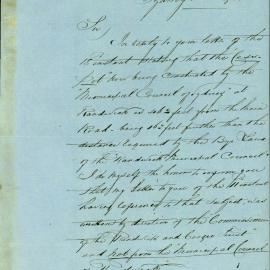 Sir
In reply to your letter of the
Instant stating that the Cess
pit now being constructed by the
"Municipal Council of Sydney" at
Randwick is sixty feet from the main
Road. being 40 feet further than the
distance required by the Bye Laws
of the "Randwick Municipal Council"
I do myself the honor to inform you
that my Letter to you of the Instant
having reference to that subject, was
written by direction of the Commissioners
of the "Randwick and Coogee trust"
and not from the Municipal Council